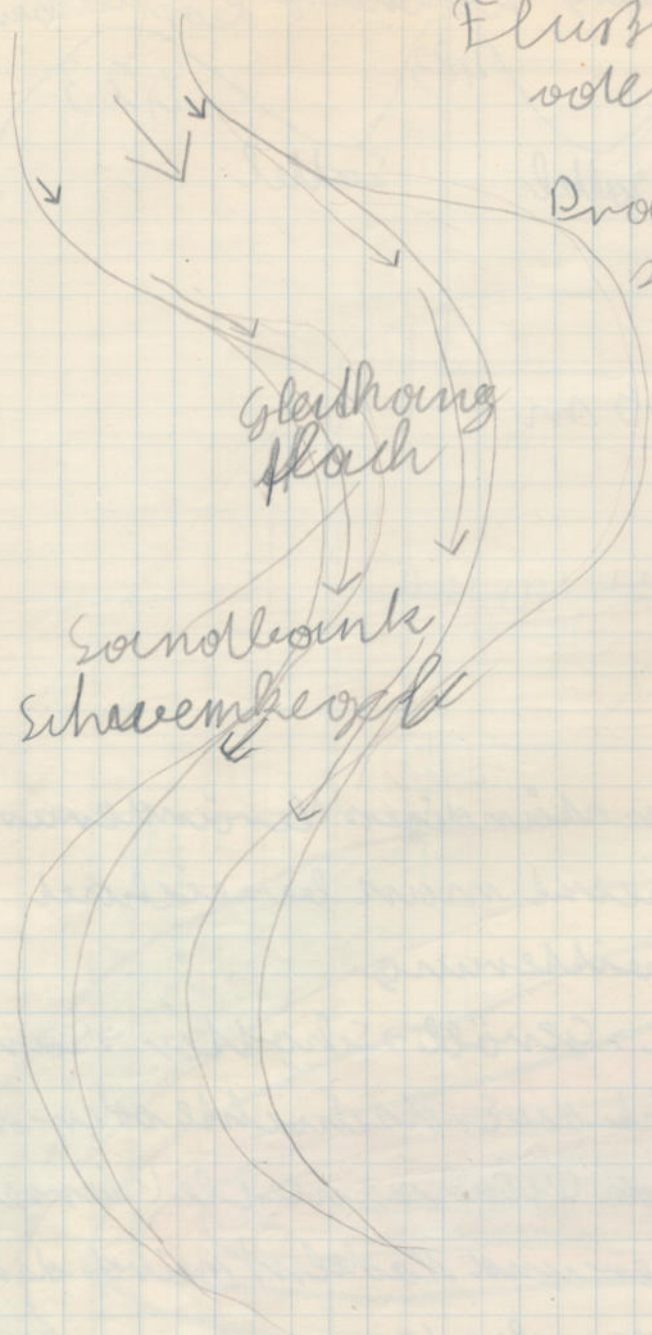 Fluß
ode
Pra
Gleithang
flach
Sandbank
Schwemkegel